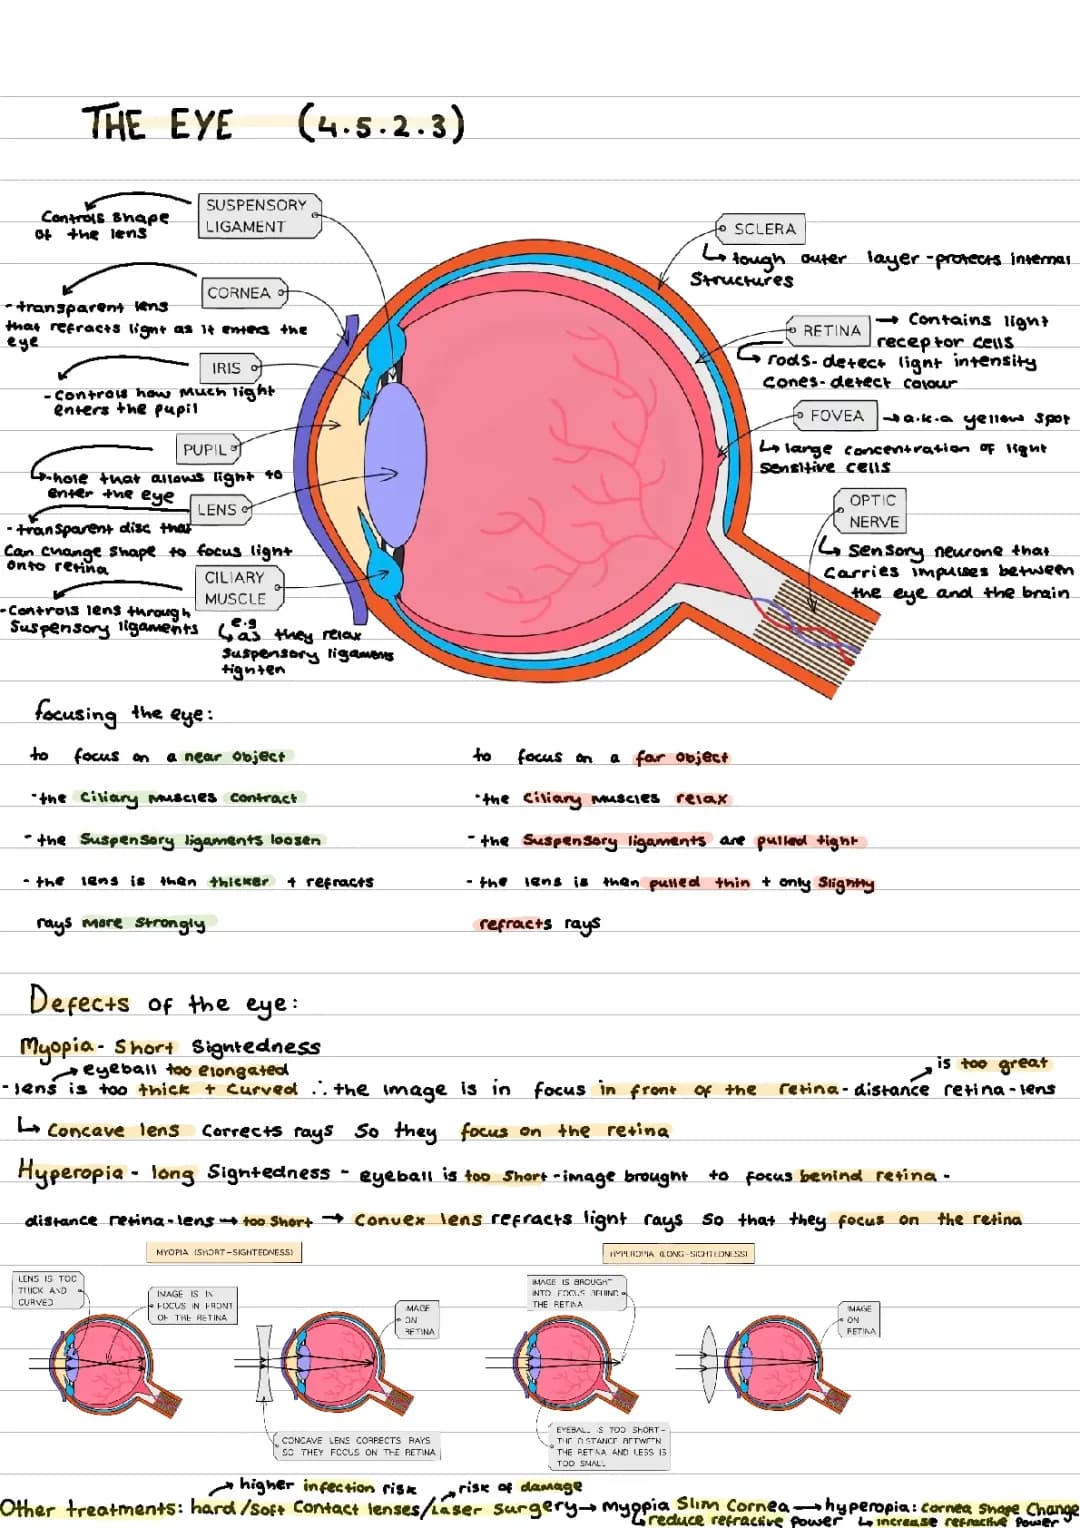 THE EYE (4.5.2.3)
SUSPENSORY
LIGAMENT
Controls shape
of the lens
CORNEA
-transparent lens
that refracts light as it enters the
eye
IRIS
-Controls how much light
enters the pupil
PUPIL
-hole that allows light to
enter the eye
LENS
-transparent disc that
can change shape to focus light
onto retina
CILIARY
MUSCLE
-Controls lens through
Suspensory ligaments
e.g
as they relax
suspensory ligaments
tighten
SCLERA
↳ tough outer layer -protects internal
structures
RETINA
→ Contains light
receptor cells
↳ rods- detect light intensity
Cones- detect colour
FOVEA
→ a.k.a yellow spot
↳ large concentration of light
sensitive cells
OPTIC
NERVE
↳ Sensory neurone that
carries impulses between
the eye and the brain
focusing the eye:
to focus on a near object
-the Ciliary muscles contract
-the Suspensory ligaments loosen
-the lens is then thicker + refracts
rays more strongly
to focus on a far object
-the Ciliary muscles relax
-the Suspensory ligaments are pulled tight
-the lens is then pulled thin + only Slightly
refracts rays
Defects of the eye:
Myopia- Short Sightedness
→ eyeball too elongated
is too great
-lens is too thick + curved ∴ the image is in focus in front of the retina- distance retina-lens
↳ Concave lens corrects rays so they focus on the retina
Hyperopia - long Sightedness - eyeball is too short -image brought to focus behind retina -
distance retina-lens → too short → Convex lens refracts light rays so that they focus on the retina
MYOPIA (SHORT-SIGHTEDNESS)
HYPEROPIA (LONG-SIGHTEDNESS)
LENS IS TOO
THICK AND
CURVED
IMAGE IS IN
FOCUS IN FRONT
OF THE RETINA
IMAGE
ON
RETINA
CONCAVE LENS CORRECTS RAYS
SO THEY FOCUS ON THE RETINA
IMAGE IS BROUGHT
INTO FOCUS BEHIND
THE RETINA
EYEBALL IS TOO SHORT-
THE DISTANCE BETWEEN
THE RETINA AND LESS IS
TOO SMALL
IMAGE
ON
RETINA
→ higher infection risk
→ risk of damage
Other treatments: hard/soft Contact lenses/Laser surgery → myopia Slim Cornea → hyperopia: cornea shape change
↳ reduce refractive power
↳ increase refractive power